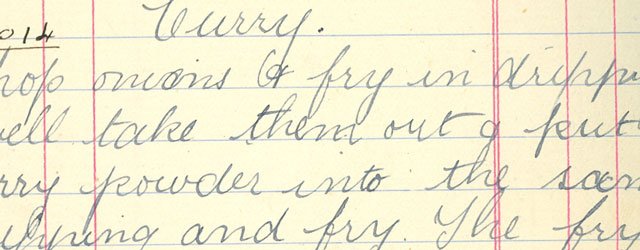 Curry.
014
hop onions & fry in drippi
well take them out & put
rry powder into the sam
ipping and fry. The fry